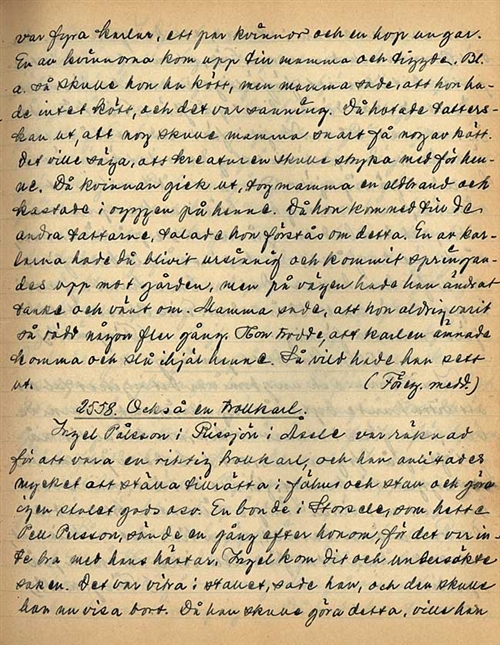 var fyra karlar, ett par kvinnor och en hop ungar.
En av kvinnorna kom upp till mamma och tiggde. Bl.
a. så skulle hon ha kött, men mamma sade, att hon ha-
de intet kött, och det var sanning. Då hotade tatters-
kan ut, att nog skulle mamma snart få nog av kött.
Det ville säga, att kreaturen skulle stryka med för hen-
ne. Då kvinnan gick ut, tog mamma en eldbrand och
kastade i ryggen på henne. Då hon kom ned till de
andra tattarne, talade hon förstås om detta. En av kar-
larna hade då blivit ursinnig och kommit springan-
des upp mot gården, men på vägen hade han ändrat
tanke och vänt om. Mamma sade, att hon aldrig varit
så rädd någon fler gång. Hon trodde, att karlen ämnade
komma och slå ihjäl henne. Så vild hade han sett
ut. (Föreg. medd.)
2558. Också en trollkarl.
Ingel Pålsson i Rissjön i Åsele var räknad
för att vara en riktig trollkarl, och han anlitades
mycket att ställa tillrätta i fähus och stall och göra
igen stulet gods osv. En bonde i Storsele, som hette
Pell Persson, sände en gång efter honom, för det var in-
te bra med hans hästar. Ingel kom dit och undersökte
saken. Det var vitra i stallet, sade han, och den skulle
han nu visa bort. Då han skulle göra detta, ville han